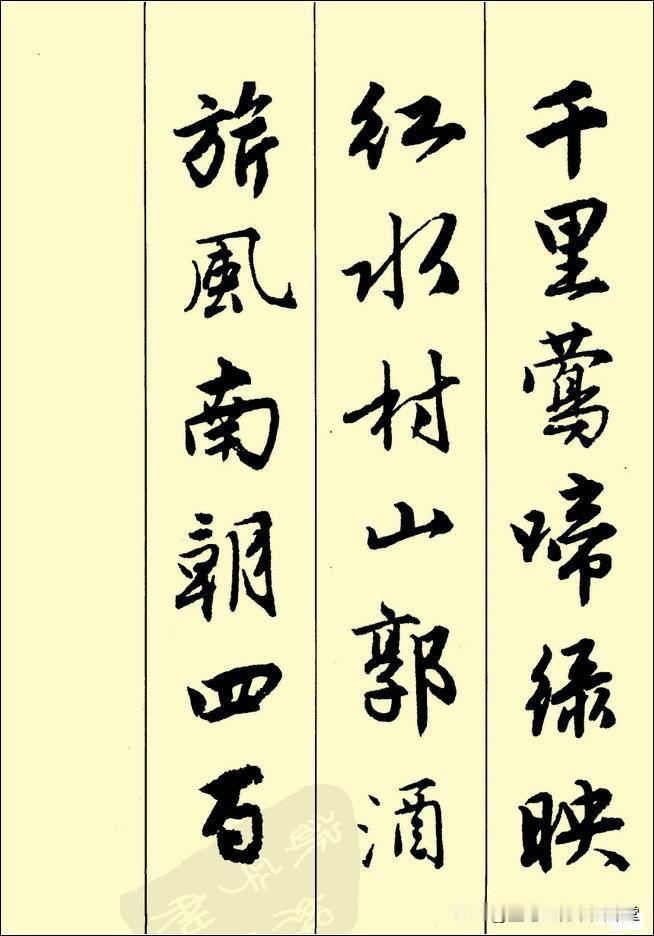 千里鶯啼绿映
红水村山郭酒
旂風南朝四百